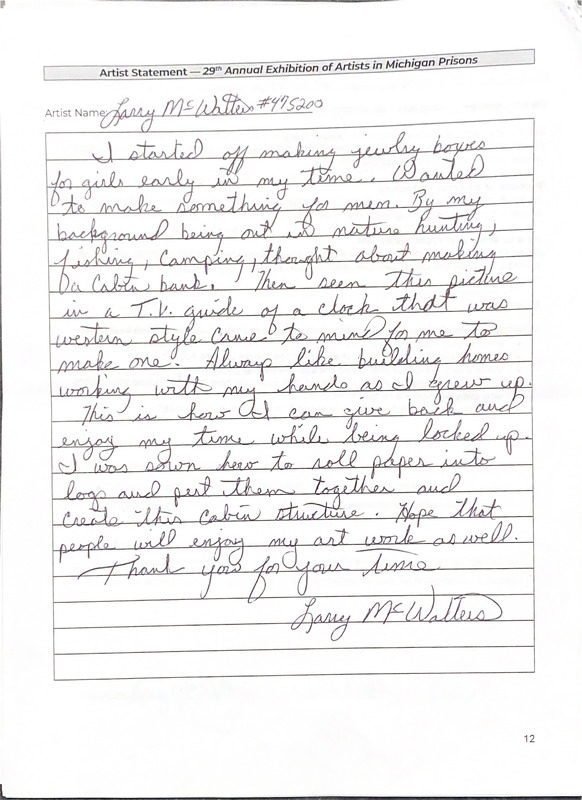 Artist Statement — 29th Annual Exhibition of Artists in Michigan Prisons
Artist Name: Larry McWatters #475200
I started off making jewlry boxes
for girls early in my time. Wanted
to make something for men. By my
background being out in nature hunting,
fishing, camping, thought about making
a Cabin bank. Then seen this picture
in a T.V. guide of a clock that was
western style came to mind for me to
make one. Always like building homes
working with my hands as I grew up.
This is how I can give back and
enjoy my time while being locked up.
I was sown how to roll paper into
logs and put them together and
create this cabin structure. Hope that
people will enjoy my art work as well.
Thank you for your time
Larry McWatters
12